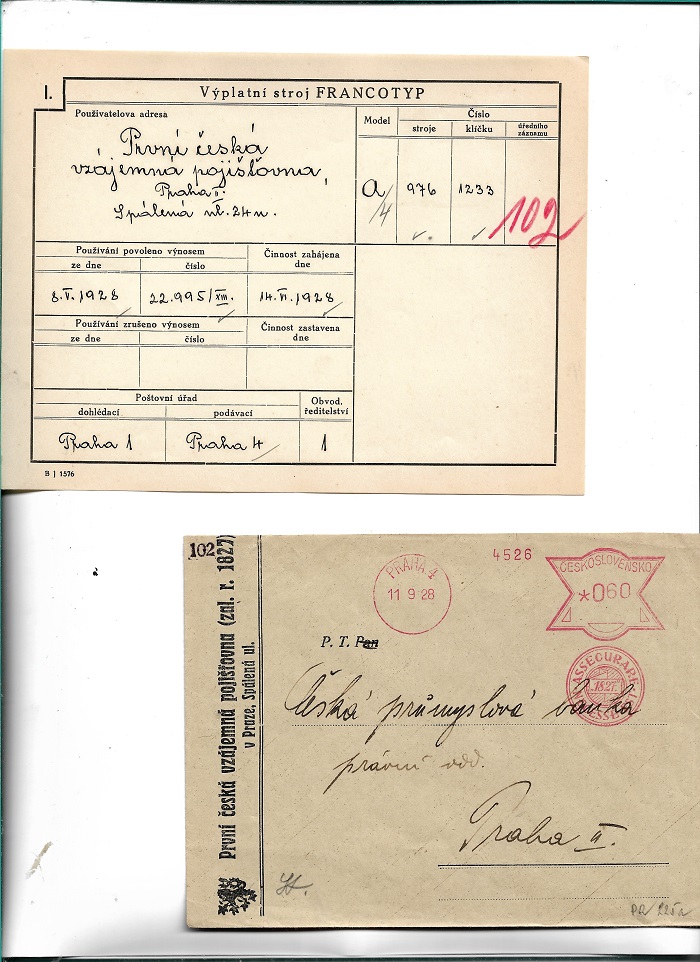 I.
Výplatní stroj FRANCOTYP
Používatelova adresa
První česká
vzájemná pojišťovna,
Praha II.
Spálená ul. 24 n.
Model
Číslo
stroje
klíčku
úředního záznamu
A/4
976
1233
102
Používání povoleno výnosem
ze dne
číslo
Činnost zahájena
dne
8.V.1928
22.995/XIII.
14.VI.1928
Používání zrušeno výnosem
ze dne
číslo
Činnost zastavena
dne
Poštovní úřad
dohlédací
podávací
Obvod.
ředitelství
Praha 1
Praha 4
1
B J 1576
102
První česká vzájemná pojišťovna (zal. r. 1827)
v Praze, Spálená ul.
PRAHA 4
11 9 28
4526
ČESKOSLOVENSKO
*060
1827
P. T. Pan
Česká průmyslová banka
právní odd.
Praha II.